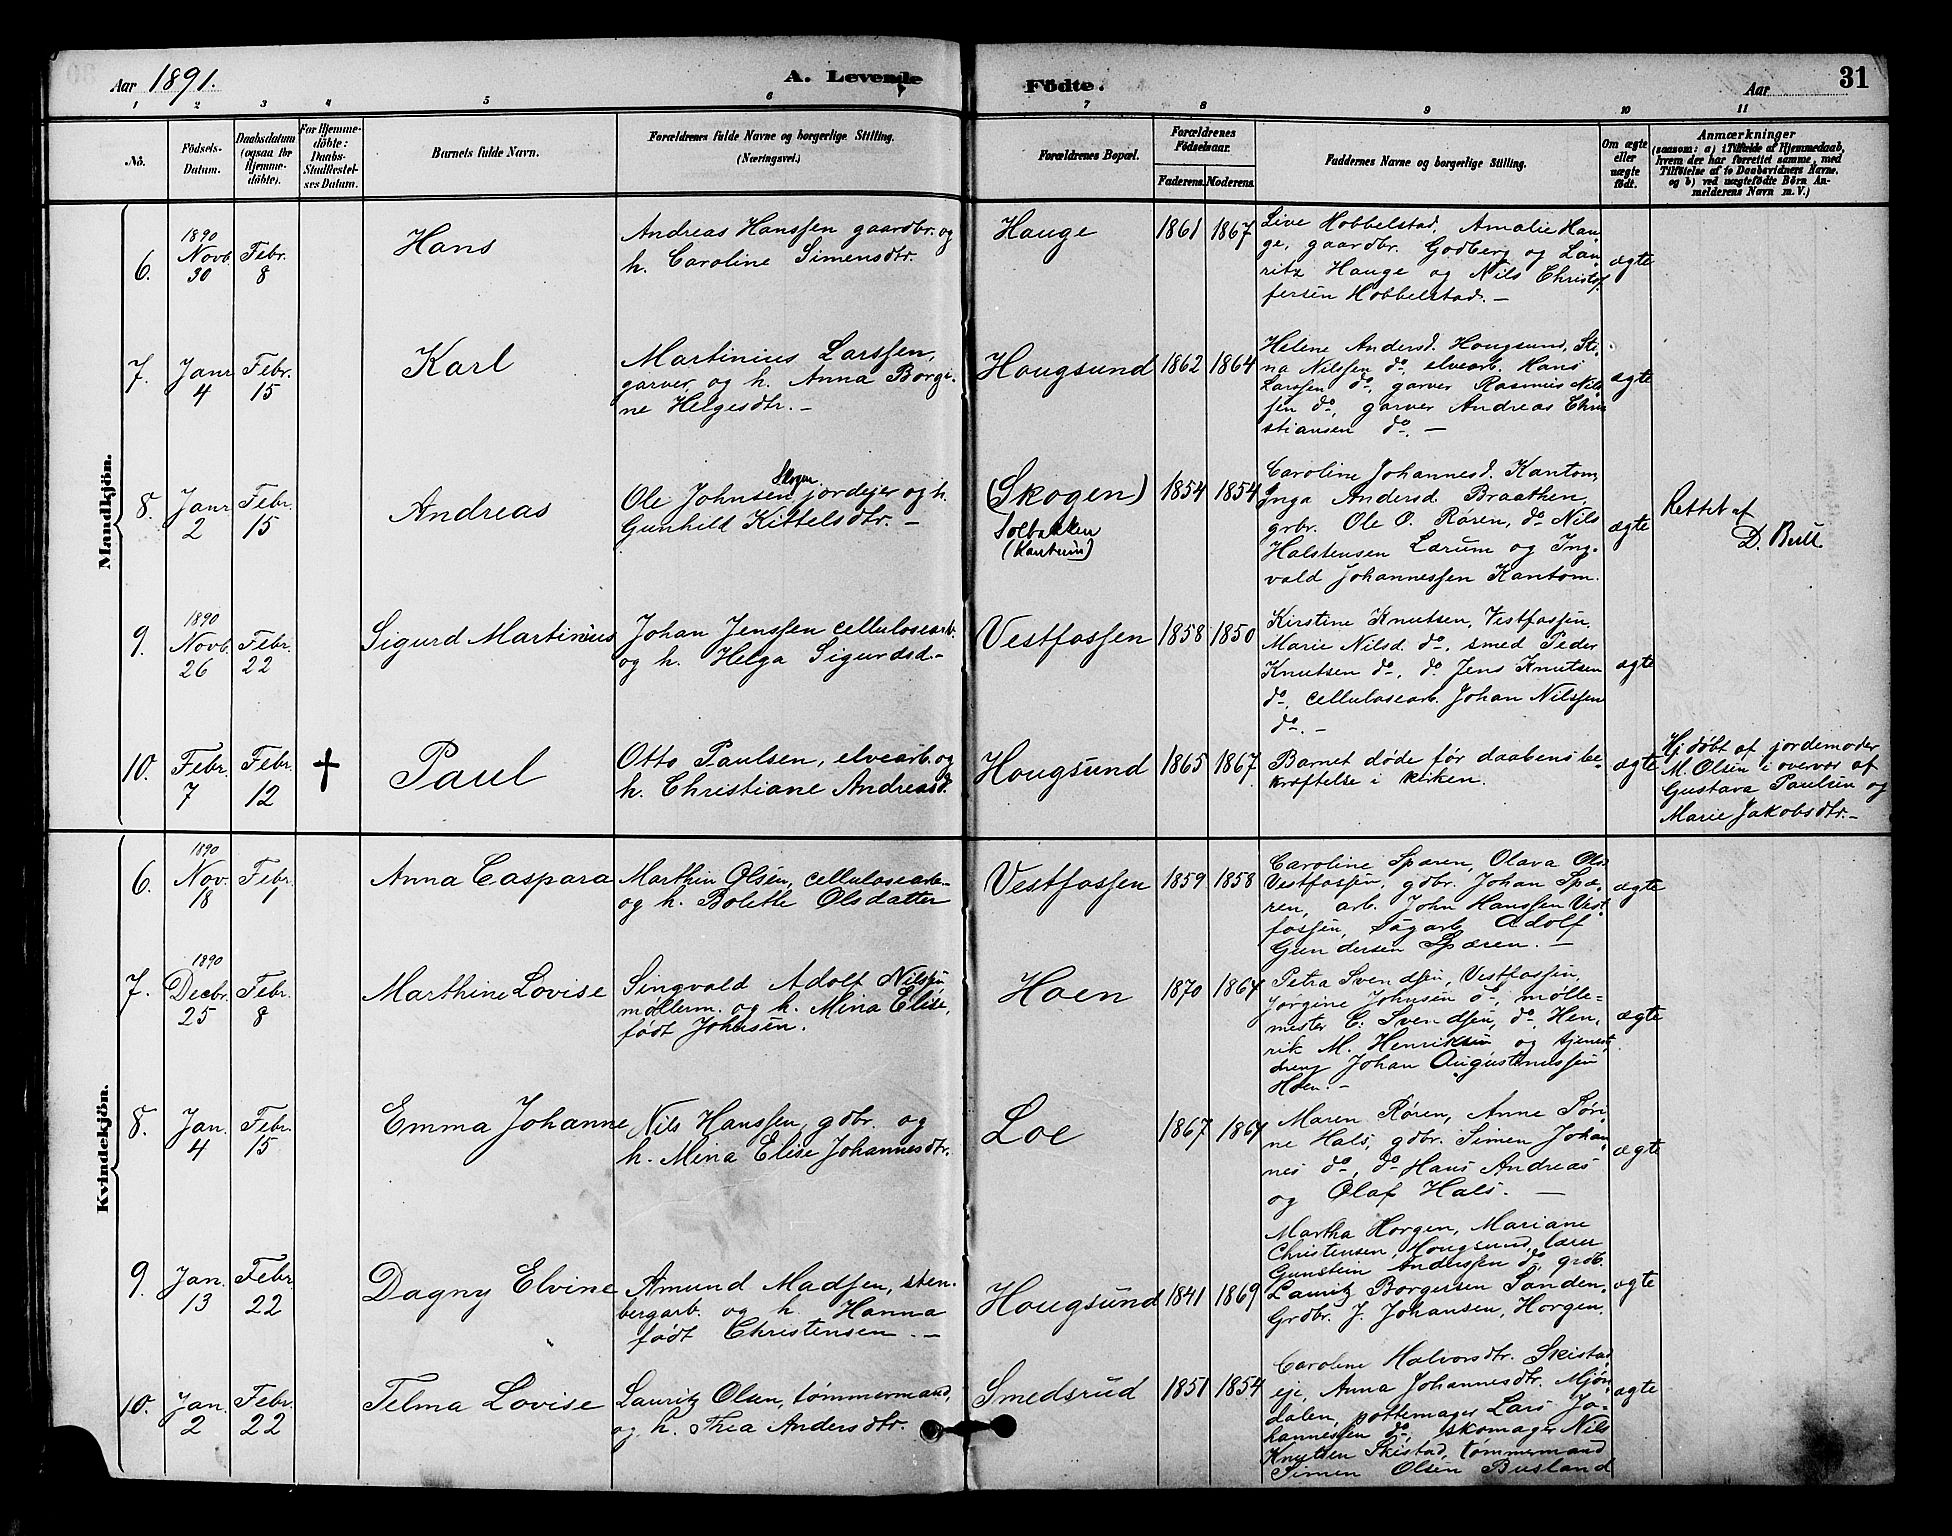 Aar 1891.
A. Levende
Födte.
Aar
31
1 2 3 4 5 6 7 8 9 10 11
No.
Födsels-
Datum.
Daabsdatum
(ogsaa for
Hjemme-
döbte).
For Hjemme-
döbte:
Daabs-
Stadfæstel-
ses Datum.
Barnets fulde Navn.
Forældrenes fulde Navne og borgerlige Stilling.
(Næringsvei.)
Forældrenes Bopæl.
Forældrenes
Födselsaar.
Faderens. Moderens.
Faddernes Navne og borgerlige Stilling.
Om ægte
eller
uægte
födt.
Anmærkninger
(saasom: a) i Tilfælde af Hjemmedaab,
hvem der har forrettet samme, med
Tilföielse af to Daabsvidners Navne,
og b) ved uægtefödte Börn An-
melderens Navn m. V.)
Mandkjön.
6.
1890
Novb.
30
Febr.
8
Hans
Andreas Hanssen gaardbr. og
h. Caroline Simensdtr.
Hauge
1861 1867
Live Hobbelstad, Amalie Hau
ge, gaardbr. Godberg og Lau
ritz Hauge og Nils Christof
fersen Hobbelstad. —
ægte
7.
Janr
4
Febr.
15
Karl
Martinius Larssen,
garver og h. Anna Borgi-
ne Helgesdtr. —
Hougsund
1862 1864
Helene Andersd. Hougsund, Sti-
na Nilssen do, elvearb. Hans
Larssen do, garver Rasmus Nils
sen do, garver Andreas Chri
stiansen do. —
ægte
8.
Janr
2
Febr.
15
Andreas
Skogen
Ole Johnsen, jordejer og h.
Gunhild Kittelsdtr. —
(Skogen)
Solbakken
(Kantum)
1854 1854
Caroline Johannesd. Kantom,
Inga Andersd. Braathen,
grbr. Ole O. Røren, do Nils
Halstensen Lærum og Ing-
vald Johannessen Kantom.
ægte
Rettet af
D. Bull
9.
1890
Novb.
26
Febr.
22
Sigurd Martinius
Johan Jenssen cellulosearb.
og h. Helga Sigurdsd. —
Vestfossen
1858 1850
Kirstine Knutsen, Vestfossen,
Marie Nilsd. do, smed Peder
Knutsen do, do Jens Knutsen
do, cellulosearb. Johan Nilssen
do. —
ægte
10.
Febr.
7
Febr.
12
†
Paul
Otto Paulsen, elvearb. og
h. Christiane Andreasd.
Hougsund
1865 1867
Barnet døde før daabens be-
kræftelse i kirken.
ægte
Hj. døbt af jordemoder
M. Olsen i overvær af
Gustava Paulsen og
Marie Jakobsdtr. —
Kvindekjön.
6.
1890
Nov.
18
Febr.
1
Anna Caspara
Marthin Olsen, cellulosearb.
og h. Bolette Olsdatter
Vestfossen
1859 1858
Caroline Spæren, Olava Ols.
Vestfossen, gdbr. Johan Spæ-
ren, arb. John Hanssen Vest
fossen, Sagarb. Adolf
Gundersen Spæren. —
ægte
7.
1890
Decbr.
25
Febr.
8
Marthine Lovise
Singvald Adolf Nilssen
møllerm. og h. Mina Elise,
født Johnsen.
Hoen
1870 1864
Petra Svendsen, Vestfossen,
Jorgine Johnsen do, mølle-
mester C. Svendsen, do, Hen,
rik M. Henriksen og tjenest,
dreng Johan Augustinussen
Hoen. —
ægte
8.
Jan.
4
Febr.
15
Emma Johanne
Nils Hanssen, gdbr. og
h. Mina Elise Johannesdtr.
Loe
1867 1864
Maren Røren, Anne Søri
ne Hals, gdbr. Simen Johan
nes do, do Hans Andreas
og Olaf Hals. —
ægte
9.
Jan.
13
Febr
22
Dagny Elvine
Amund Madsen, sten-
bergarb. og h. Hanna
født Christensen. —
Hougsund
1841 1869
Martha Horgen, Mariane
Christensen, Hougsund, lærer
Gunstein Anderssen do, grdb.
Lauritz Borgersen Sanden,
Grdbr. J. Johansen, Horgen.
ægte
10.
Jan.
2
Febr.
22
Telma Lovise
Lauritz Olsen, tømmermand,
og h. Thea Andersdtr.
Smedsrud
1851 1854
Caroline Halvorsdtr. Skistad
eje, Anna Johannesdtr. Mjøn
dalen, pottemager Lars Jo-
hannessen do, skomager Nils
Knutsen Skistad, tømmermand
Simen Olsen Busland
ægte